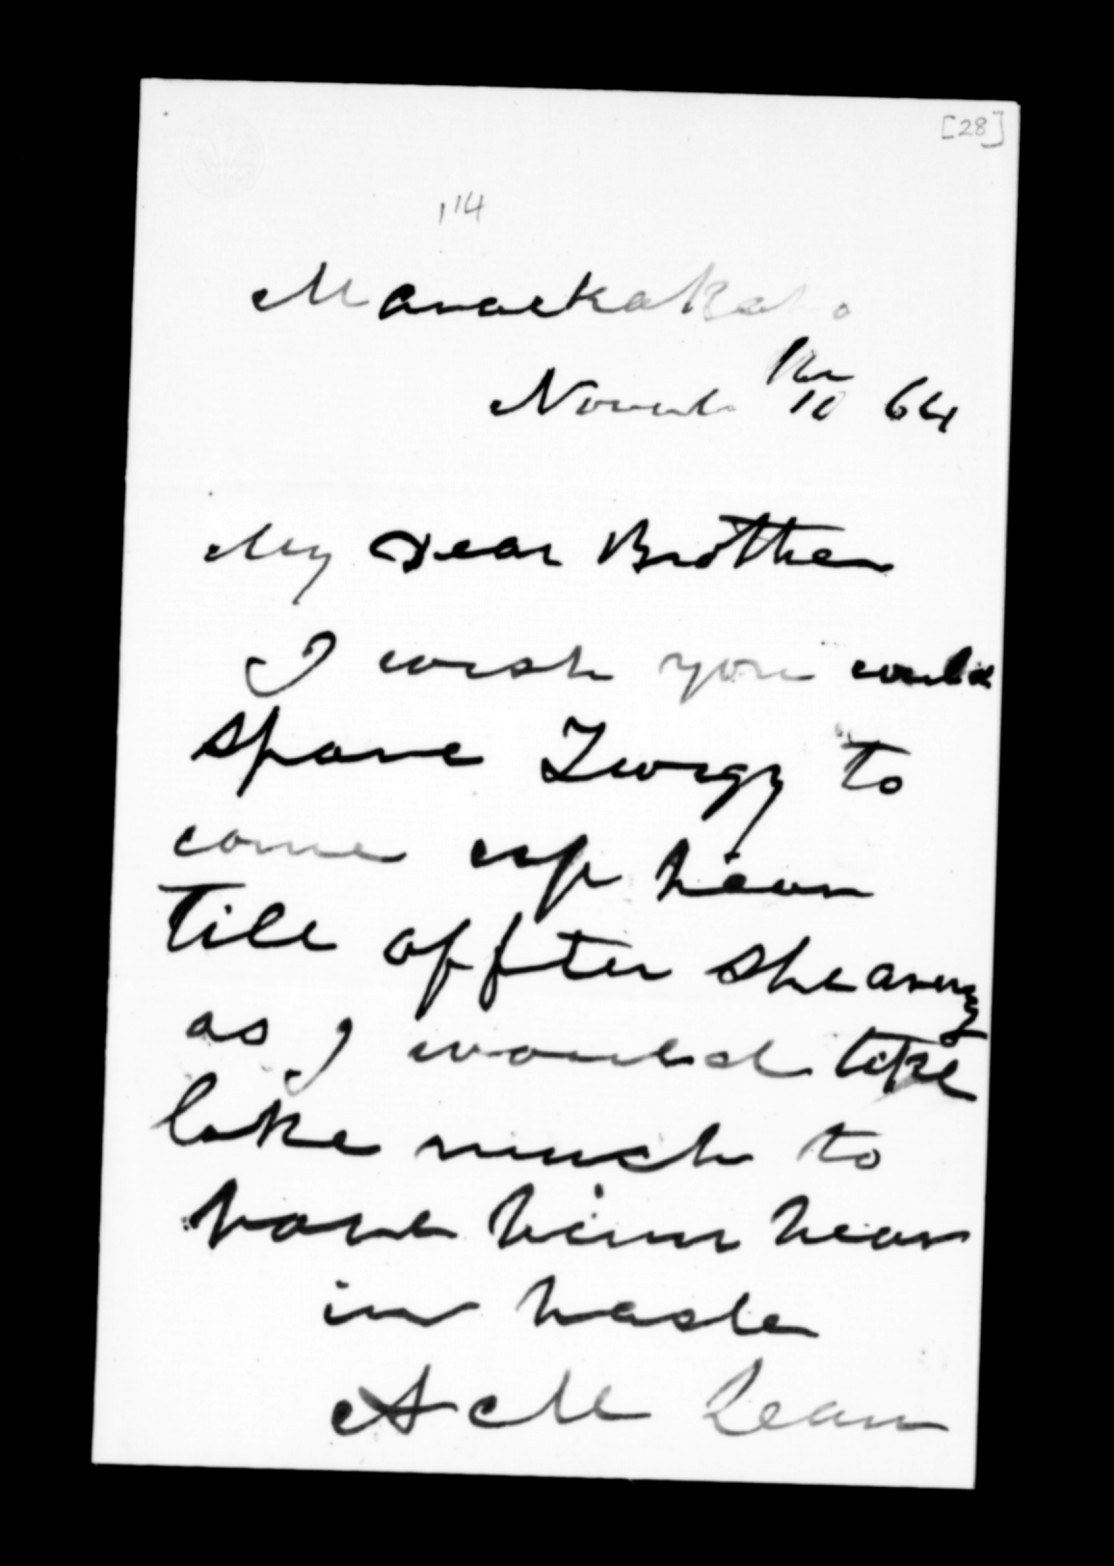 [28]
114
Maraekakaho
Novmbr 10 64
My Dear Brother
I wish you would
spare to
come up hear
till affter shearing
as I would like
like much to
have him hear
in haste
A McLean